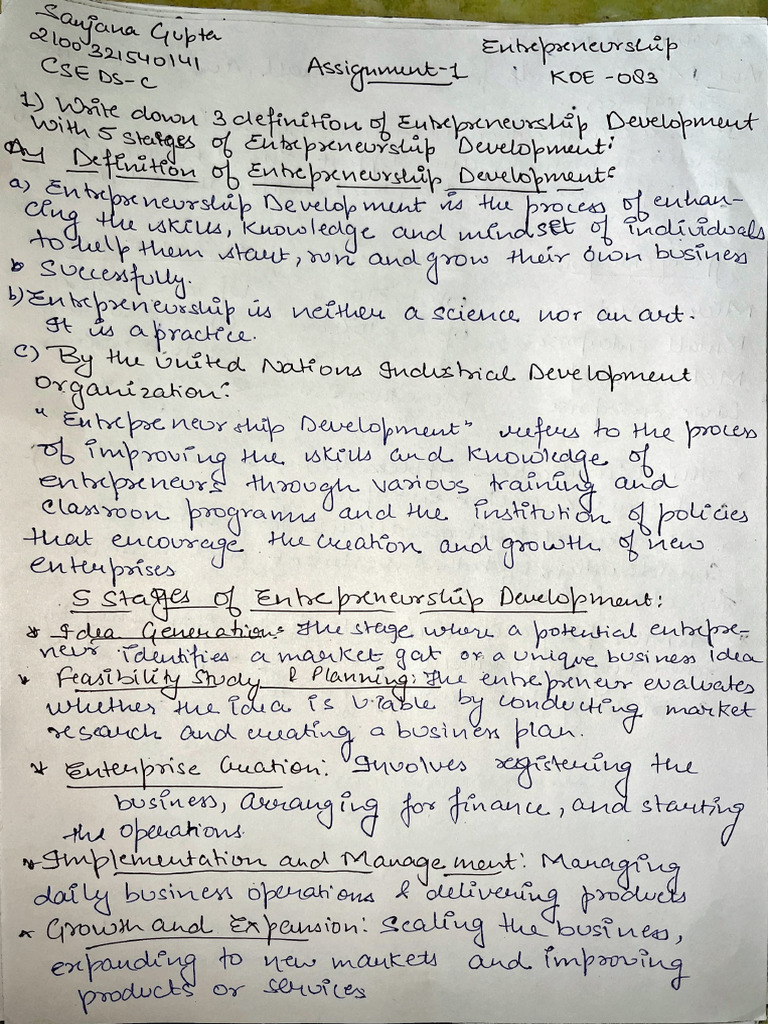 Sanjana Gupta
2100321540141
CSE DS-C
Entrepreneurship
Assignment-1
KOE-083
1) Write down 3 definition of Entrepreneurship Development
with 5 stages of Entrepreneurship Development:
Definition of Entrepreneurship Development:
a) Entrepreneurship Development is the process of enhan-
cing the skills, knowledge and mindset of individuals
to help them start, run and grow their own business
Successfully.
b) Entrepreneurship is neither a science nor an art.
It is a practice.
c) By the United Nations Industrial Development
Organization:
"Entrepreneurship Development" refers to the process
of improving the skills and knowledge of
entrepreneurs through various training and
classroon programs and the institution of policies
that encourage the creation and growth of new
enterprises
5 Stages of Entrepreneurship Development:
* Idea Generation: The stage where a potential entrepre-
neur identifies a market gat or a unique business idea
* Feasibility Study & Planning: The entrepreneur evaluates
whether the idea is viable by conducting market
research and creating a business plan.
* Enterprise Creation: Involves registering the
business, arranging for finance, and starting
the operations.
* Implementation and Management: Managing
daily business operations & delivering products
* Growth and Expansion: Scaling the business,
expanding to new markets and improving
products or services